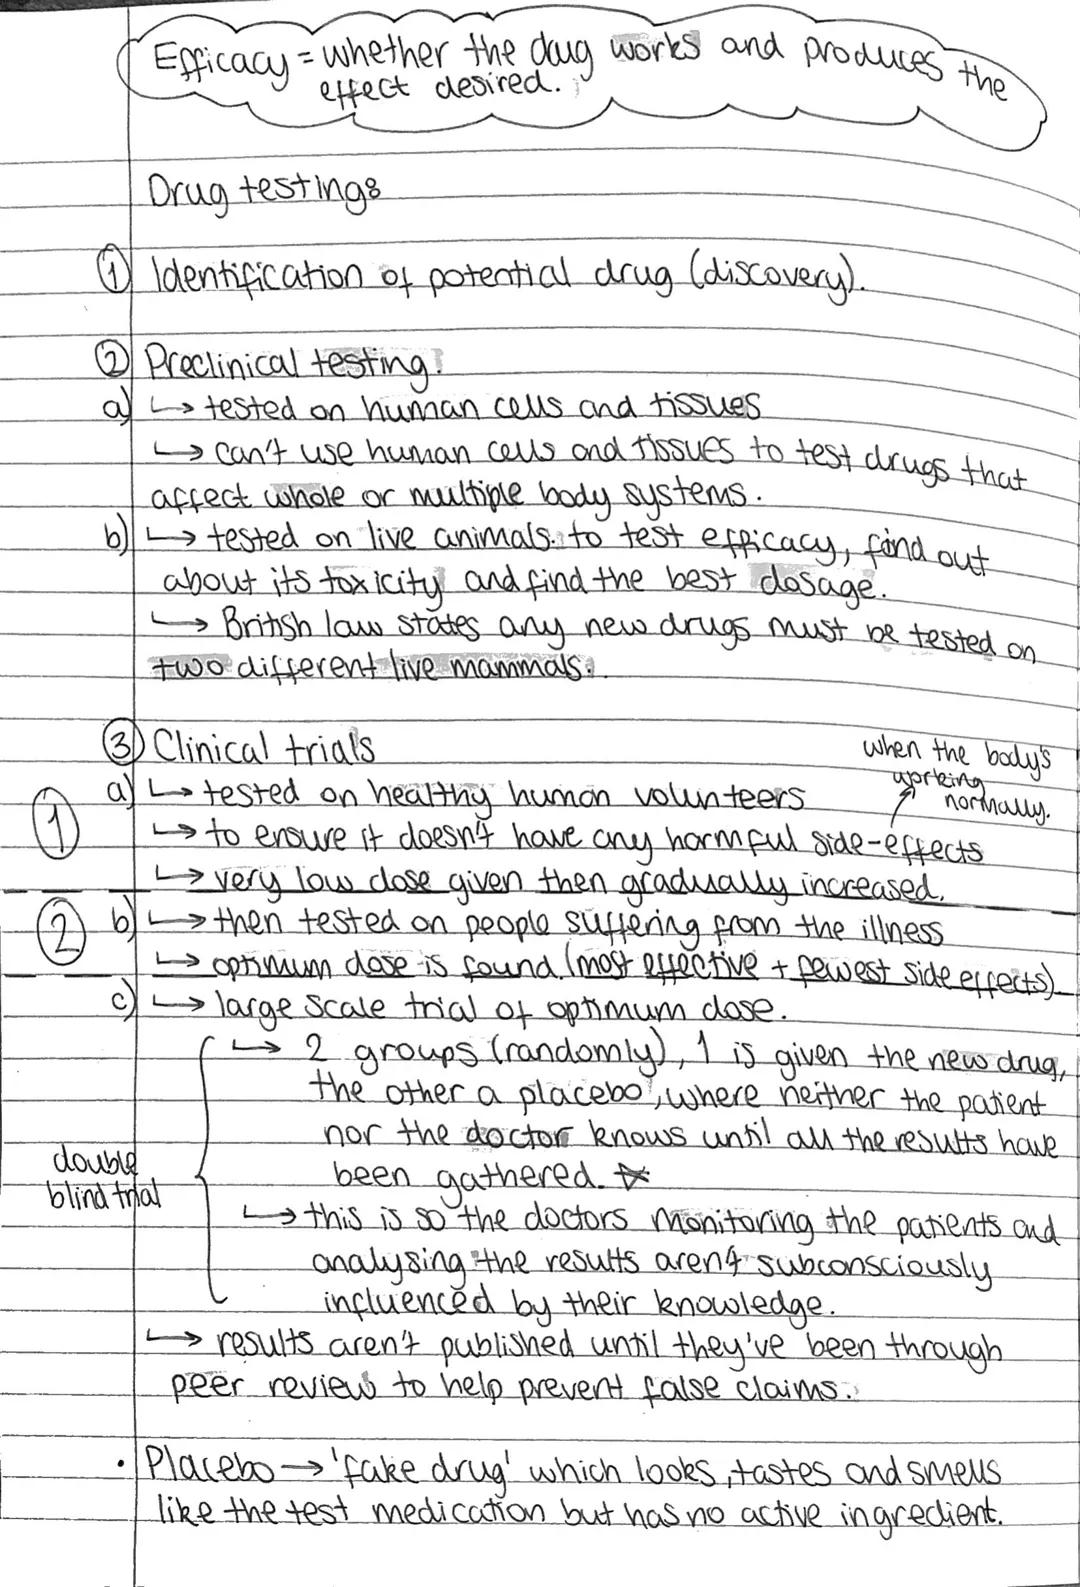 Efficacy = whether the drug works and produces the
effect desired.
Drug testing:
① Identification of potential drug (discovery).
② Preclinical testing:
a) ↳ tested on human cells and tissues
↳ can't use human cells and tissues to test drugs that
affect whole or multiple body systems.
b) ↳ tested on live animals to test efficacy, find out
about its toxicity and find the best dosage.
↳ British law states any new drugs must be tested on
two different live mammals.
③ Clinical trials
when the body's
working
normally.
① a) ↳ tested on healthy human volunteers
↳ to ensure it doesn't have any harmful side-effects
↳ very low dose given then gradually increased.
② b) ↳ then tested on people suffering from the illness
↳ optimum dose is found. (most effective + fewest side effects)
c) ↳ large scale trial of optimum dose.
↳ 2 groups (randomly), 1 is given the new drug,
the other a placebo, where neither the patient
nor the doctor knows until all the results have
been gathered. ☆
double
blind trial
↳ this is so the doctors monitoring the patients and
analysing the results aren't subconsciously
influenced by their knowledge.
↳ results aren't published until they've been through
peer review to help prevent false claims.
• Placebo → 'fake drug' which looks, tastes and smells
like the test medication but has no active ingredient.